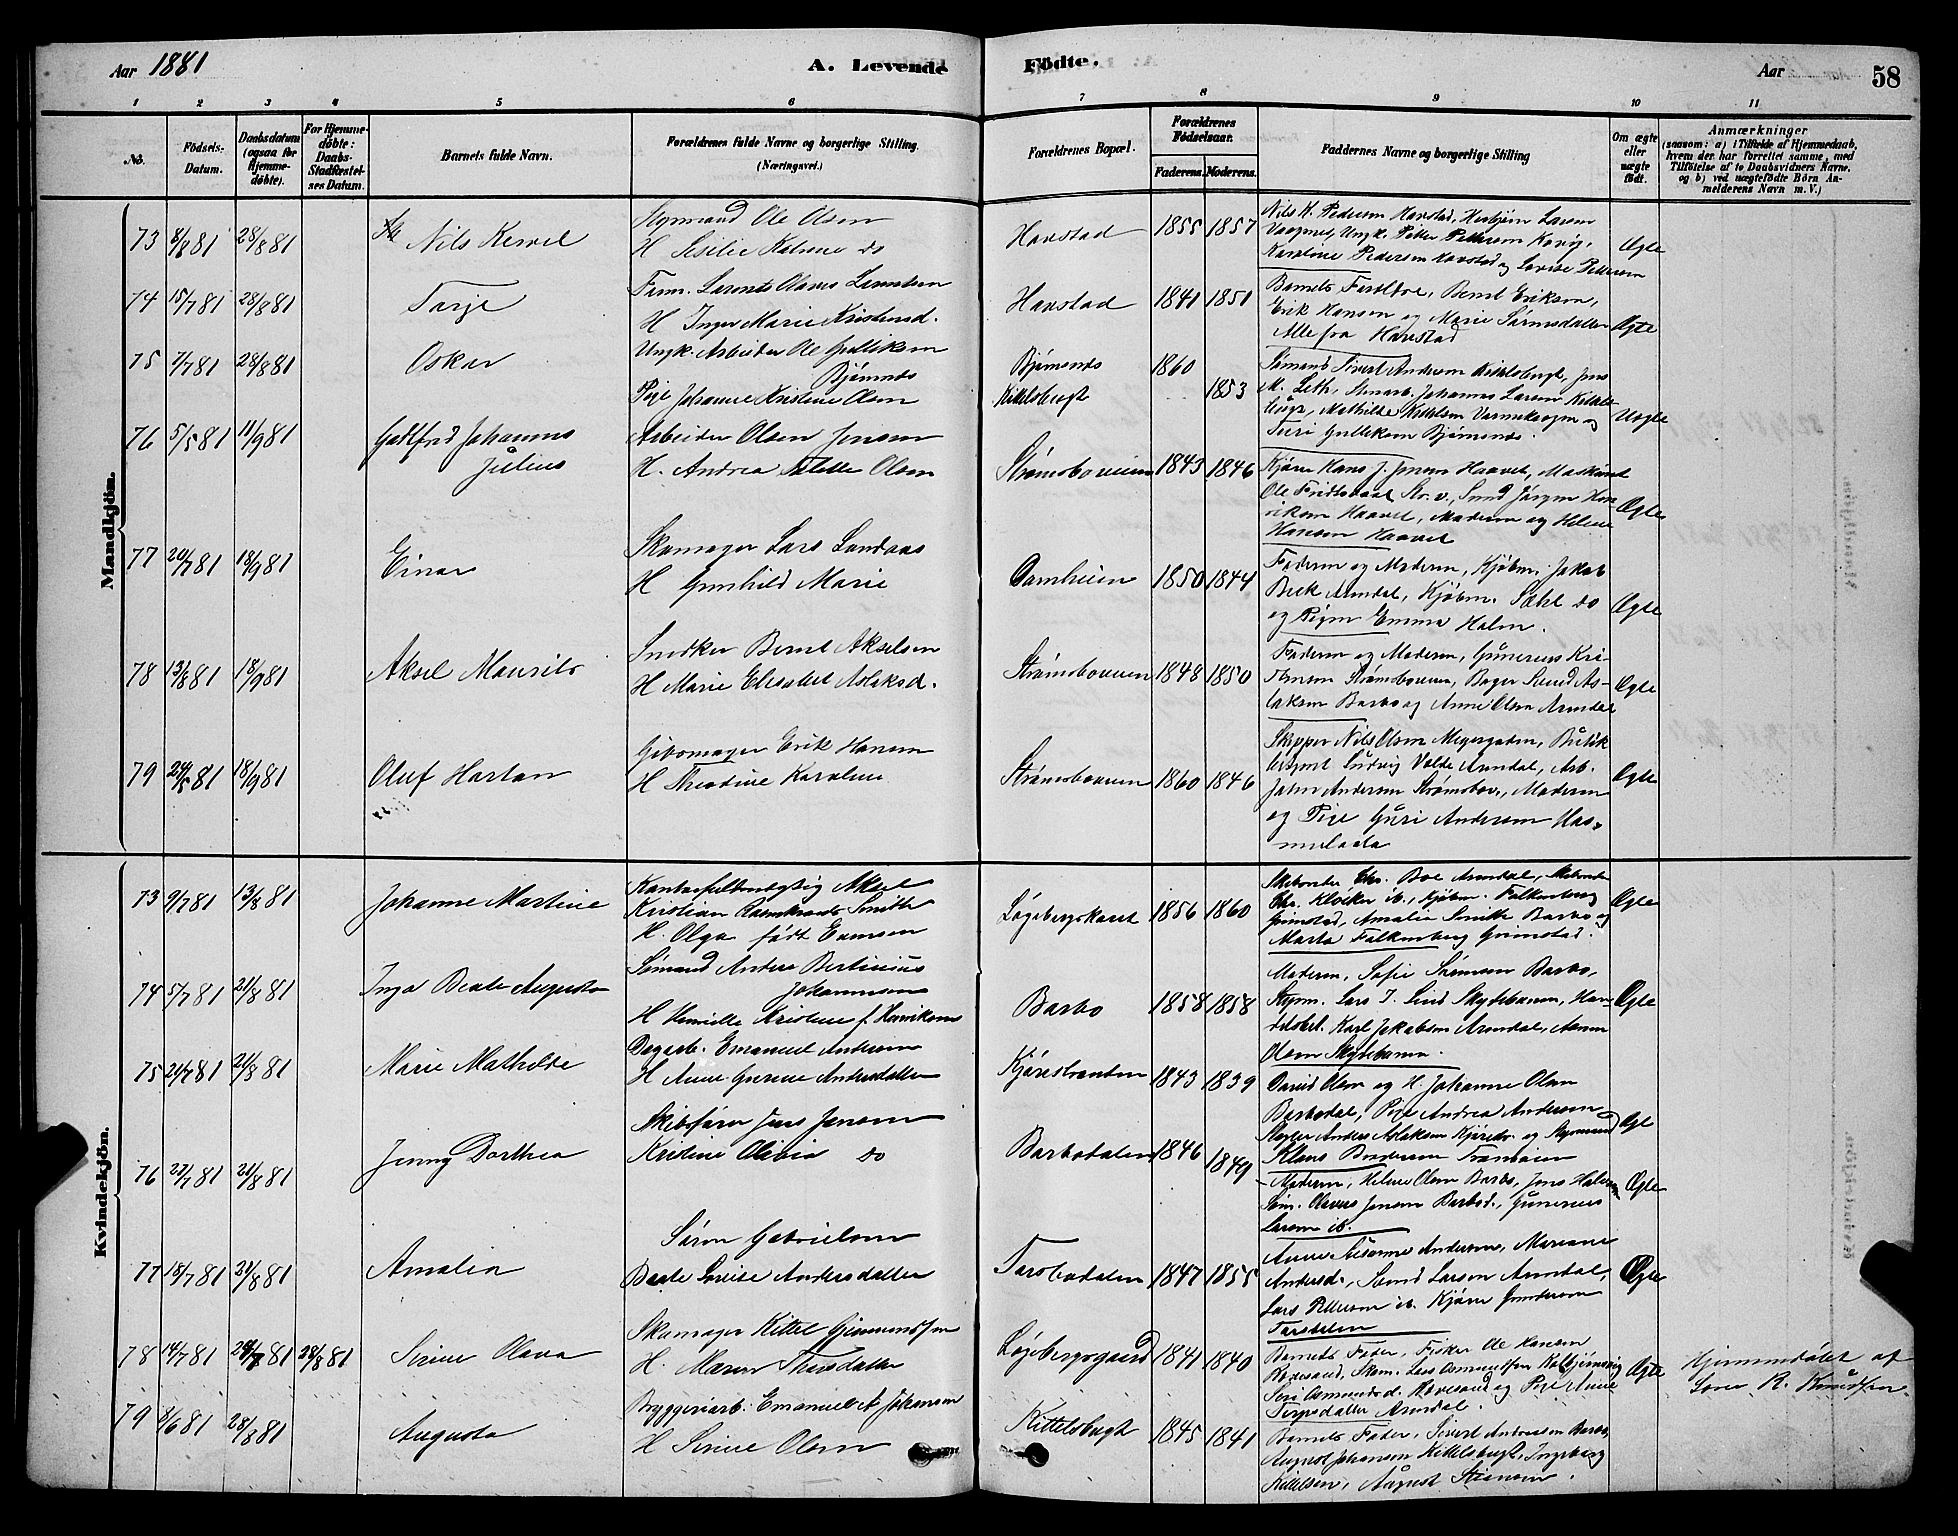 Aar 1881
A. Levende Fødte.
Aar
58
1 2 3 4 5 6 7 8 9 10 11
No.
Fødsels-Datum.
Daabsdatum (ogsaa for Hjemmedøbte).
For Hjemmedøbte: Daabs-Stadfæstelses Datum.
Barnets fulde Navn.
Forældrenes fulde Navne og borgerlige Stilling. (Næringsvei.)
Forældrenes Bopæl.
Forældrenes Fødselsaar.
Faderens. Moderens.
Faddernes Navne og borgerlige Stilling
Om ægte eller uægte født.
Anmærkninger
(saasom: a) i Tilfælde af Hjemmedaab, hvem der har forrettet samme, med Tilføielse af to Daabsvidners Navne, og b) ved uægtefødte Børn Anmelderens Navn m. V.)
Mandkjön.
73 8/8 81 28/8 81 Nils Kervel
Styrmand Ole Olsen
H Sesilie Katrine do
Havstad 1855 1857
Nils K. Pedersen Havstad, Herbjørn Larsen
Ungk. Peter Pettersen
Karoline Pedersen Havstad og Lovise Pettersen
Ægte
74 15/7 81 28/8 81 Tarje
Tøm. Larents Olaves Larentsen
H Inger Marie Kristensd.
Havstad 1841 1851
Barnets Forældre, Bernt Erikson,
Erik Hansen og Marie Sørensdatter
Alle fra Havstad
Ægte
75 7/7 81 28/8 81 Oskar
Ungk. Arbeider Ole Gulleksen
Bjørnnes
Pige Johanne Kristine Olsen
Bjørnenes 1860
Kittelsbugt 1853
Sømand Sivert Andersen Kittelsbugt, Jens
M. Leth, Johannes Larsen Kittels-
bugt, Mathilde Kittelsen og
Turi Gulleksen Bjørnenes.
Uægte
76 5/5 81 11/9 81 Godtfred Johannes
Julius
Arbeider Olsen Jensen
H. Andrea Olsen
Strømsboveien 1843 1846
Kjører Hans J. Jensen Haavet, Maskinist
Ole Str. v., Smed Jørgen Hen-
riksen Haavet, Moderen og Helene
Hansen Haavet
Ægte
77 20/7 81 18/9 81 Einar
Skomager Lars Landaas
H Gunhild Marie
1850 1844
Faderen og Moderen, Kjøbm. Jakob
Beck Arendal, Kjøbm. do
og Pigen Emma Holm.
Ægte
78 13/8 81 18/9 81 Aksel Maurits
Snedker Bernt Akselsen
H Marie Elisabet Aslaksd.
Strømsboveien 1848 1850
Faderen og Moderen, Gunerius Kri-
stensen Strømsboveien, Bager Svend As-
laksen Barbo og Anne Olsen Arendal
Ægte
79 24/5 81 18/9 81 Oluf Hartan
Gibsmager Erik Hansen
H Theodine Karoline
Strømsboveien 1860 1846
Skipper Nils Olsen Meyergaden, Butik-
betjent Ludvig Volde Arendal, Arb.
John Andersen Strømsbov., Moderen
og Pige Guri Andersen Has-
Ægte
Kvindekjön.
73 9/7 81 13/8 81 Johanne Martine
Kontorfuldmægtig Aksel
Kristian Rosenkrants Smith
H. Olga født Evensen
Løgebergskaret 1856 1860
Chr. Boe Arendal,
Chr. Kløcker ib., Kjøbm. Falkenberg
Grimstad, Amalie Smith Barbo og
Marta Falkenberg Grimstad.
Ægte
74 5/7 81 21/8 81 Inga Beate Augusta
Sømand Anders Bertinius
Johannesen
H Henriette Kristine f. Henriksen
Barbo 1858 1858
Moderen, Sofie Sørensen Barbo,
Styrm. Lars J. Lind Skytebanen, Han-
delsbet. Karl Jakobsen Arendal,
Olsen Skytebanen.
Ægte
75 21/7 81 21/8 81 Marie Mathilde
Dagarb. Emanuel Andersen
H Anne Gurine Andersdatter
Kjørestranden 1843 1839
David Olsen og H. Johanne Olsen
Barbodal, Pige Andrea Andersen
Anders Aslaksen Kjørestr. og Styrmand
Klaus Pedersen
Ægte
76 27/7 81 21/8 81 Jenny Dorthea
Skibsfører Jens Jensen
Kristine Olivia do
Barbodalen 1846 1849
Moderen, Helene Olsen Barbo, Jens Halvorsen
Søm. Olaves Jensen Barbod., Gunerius
Larsen ib.
Ægte
77 18/7 81 21/8 81 Amalia
Søren Gabrielsen
Berte Lovise Andersdatter
Torsbodalen 1847 1855
Anne Susanne Andersen, Mariane
Andersd., Svend Larsen Arendal,
Lars Pettersen ib. Kjører Gundersen
Ægte
78 14/7 81 24/7 81 28/8 81 Serine Olava
Skomager Kittel Gjermundsen
H. Maren Theisdatter
Løgebergsgaard 1841 1840
Barnets Fader, Fisker Ole Hansen
Havesand, Skom. Lars Osmundsen Kolbjørnsvig
Siri Osmundsd. Havesand og Pige Anne
Terjesdatter Arendal.
Ægte
Hjemmedøbt af
Søren K. Knudsen.
79 8/6 81 28/8 81 Augusta
Bryggeriarb. Emanuel A Johansen
H Serine Olsen
Kittelsbugt 1845 1841
Barnets Fader, Sivert Andersen Barbo,
August Johansen Kittelsbugt, Ingeborg
Kittelsen, August Stiansen.